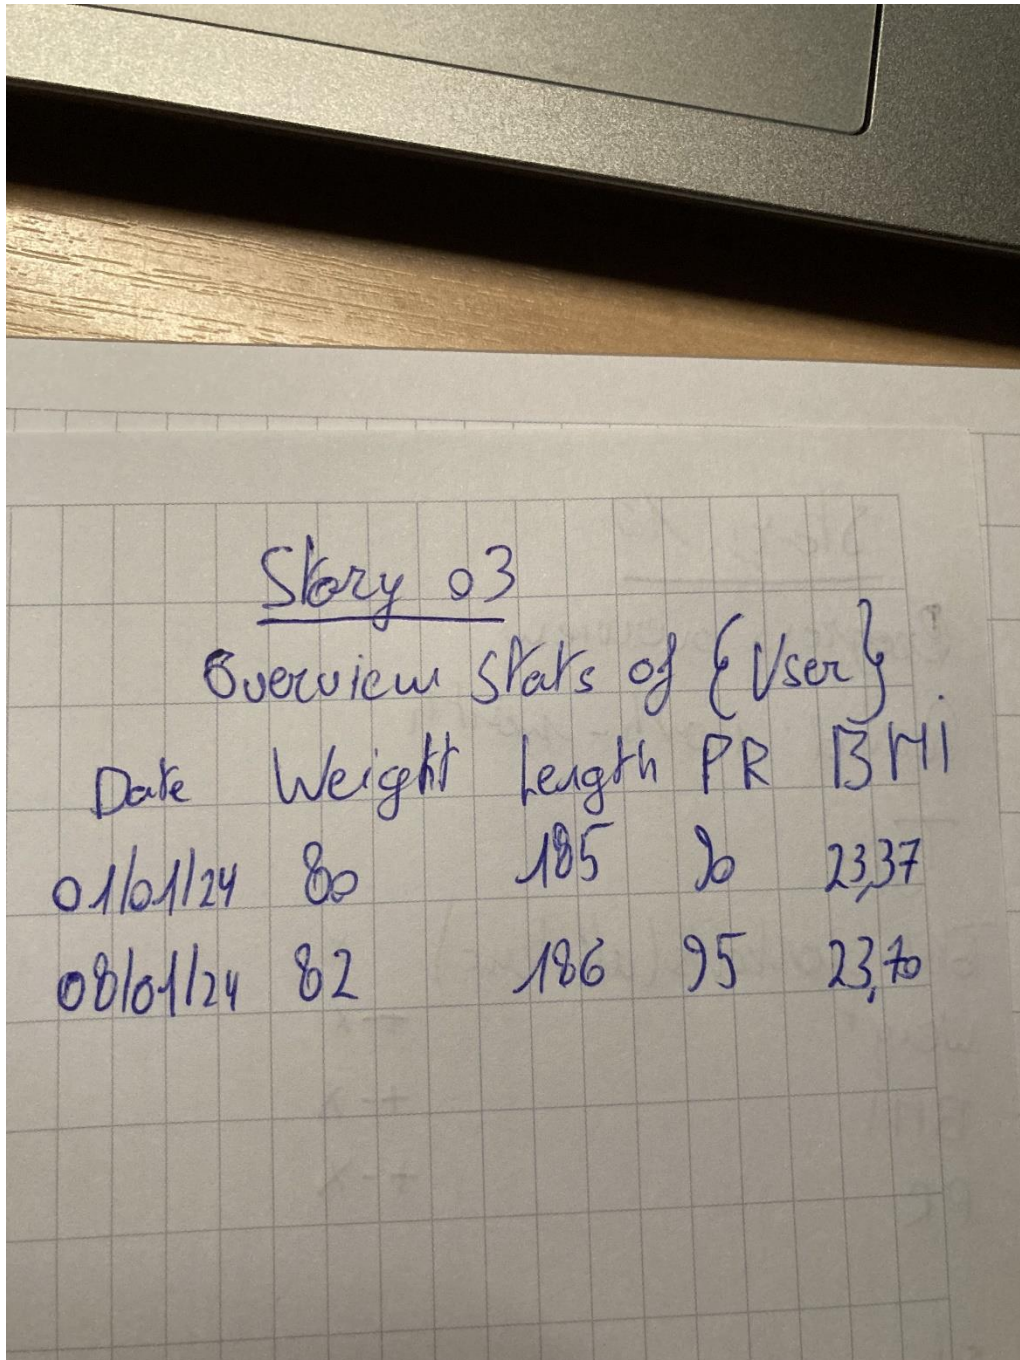 Story 03
Overview Stats of {User}
Date Weight Length PR BMI
01/01/24 80 185 90 23,37
08/01/24 82 186 95 23,70